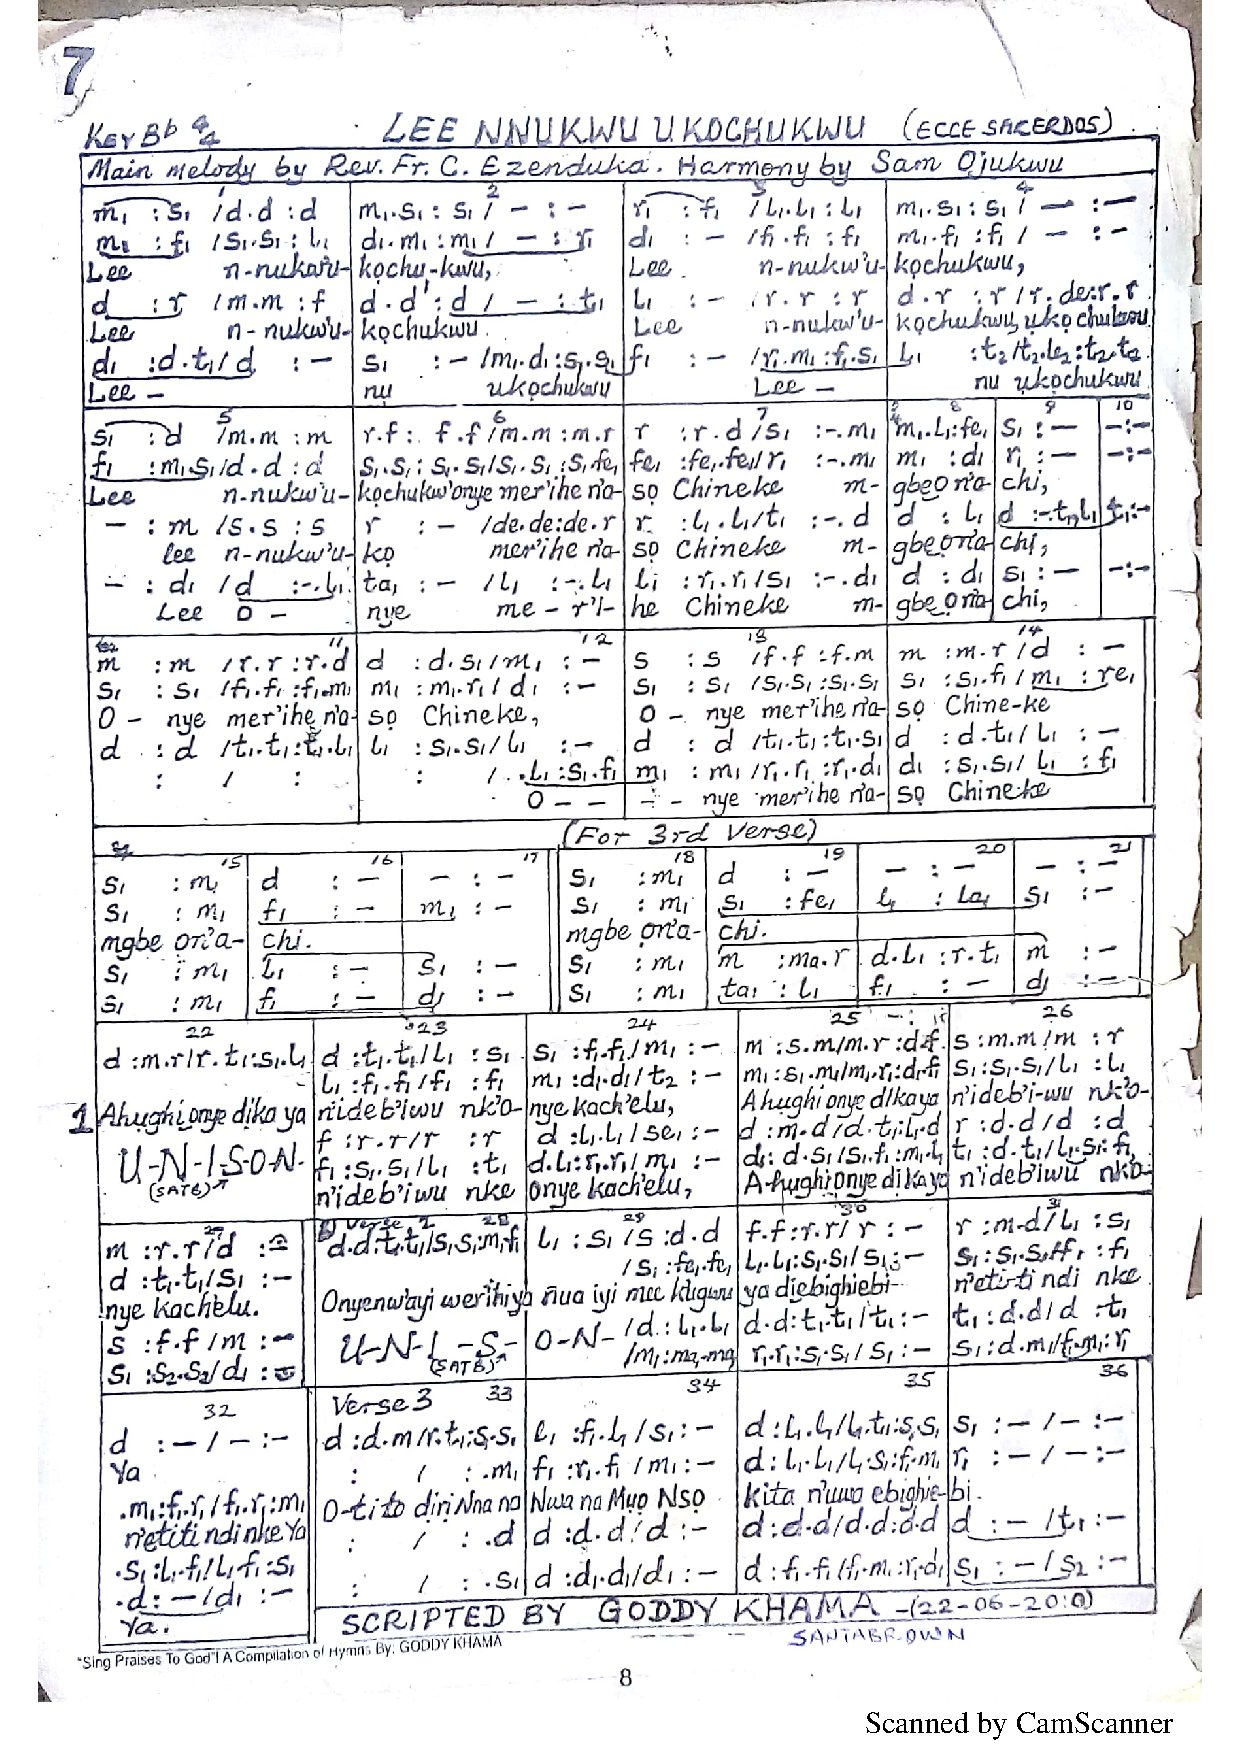 7
KEY Bb 4/4 LEE NNUKWU UKOCHUKWU (ECCE SACERDOS)
Main melody by Rev. Fr. C. Ezenduka. Harmony by Sam Ojukwu
1 2 3 4
m₁ : s₁ /d.d :d m₁.s₁ : s₁ / – : – r₁ : f₁ /l₁.l₁ : l₁ m₁.s₁ : s₁ / – : –
m₁ : f₁ /s₁.s₁ : l₁ d₁.m₁ : m₁ / – : r₁ d₁ : – /f₁.f₁ : f₁ m₁.f₁ : f₁ / – : –
Lee n-nukwu- kọchu-kwu, Lee n-nukw'u- kọchukwu,
d : r /m.m : f d.d : d / – : t₁ l₁ : – /r.r : r d.r : r /r.de:r.r
Lee n-nukw'u- kọchukwu. Lee n-nukw'u- kọchukwu, ukọchukwu
d₁ :d.t₁/d : – s₁ : – /m₁.d₁:s₁.s₁ f₁ : – /r₁.m₁:f₁.s₁ l₁ :t₂/t₂.le₂:t₂.t₂
Lee – nụ ukọchukwu Lee – nụ ukọchukwu
5 6 7 8 9 10
s₁ : d /m.m : m r.f : f.f /m.m :m.r r :r.d /s₁ :-.m₁ m₁.l₁:fe₁ s₁ : – – : –
f₁ :m₁.s₁/d.d : d s₁.s₁ : s₁.s₁/s₁.s₁ :s₁.fe₁ fe₁ :fe₁.fe₁/r₁ :-.m₁ m₁ :d₁ r₁ : – – : –
Lee n-nukw'u- kọchukw'onye mer'ihe n'a- sọ Chineke m- gbe O n'a- chi,
– : m /s.s : s r : – /de.de:de.r r :l₁.l₁/t₁ :-.d d : l₁ d :-.t₁,l₁ t₁:–
lee n-nukw'u- kọ mer'ihe n'a- sọ Chineke m- gbe O n'a- chi,
– : d₁ /d :-.l₁ ta₁ : – /l₁ :-.l₁ l₁ : r₁.r₁/s₁ :-.d₁ d : d₁ s₁ : – – : –
Lee O – nye me – r'i- he Chineke m- gbe O n'a- chi,
11 12 13 14
m :m /r.r :r.d d :d.s₁/m₁ : – s :s /f.f :f.m m :m.r /d : –
s₁ : s₁ /f₁.f₁ :f₁.m₁ m₁ :m₁.r₁/ d₁ :– s₁ : s₁ /s₁.s₁ :s₁.s₁ s₁ :s₁.f₁ / m₁ : re₁
O – nye mer'ihe n'a- sọ Chineke, O – nye mer'ihe n'a- sọ Chine-ke
d : d /t₁.t₁:t₁.l₁ l₁ : s₁.s₁/ l₁ :– d : d /t₁.t₁ :t₁.s₁ d :d.t₁/ l₁ : –
: / : : / .l₁ :s₁.f₁ m₁ : m₁ /r₁.r₁ :r₁.d₁ d₁ : s₁.s₁/ l₁ : f₁
O – – – – nye mer'ihe n'a- sọ Chineke
(For 3rd Verse)
15 16 17 18 19 20 21
s₁ : m₁ d : – – : – s₁ : m₁ d : – – : – – : –
s₁ : m₁ f₁ : – m₁ : – s₁ : m₁ s₁ : fe₁ l₁ : la₁ s₁ : –
mgbe ọn'a- chi. mgbe ọn'a- chi.
s₁ : m₁ l₁ : – s₁ : – s₁ : m₁ m :ma.r d.l₁ : r.t₁ m : –
s₁ : m₁ f₁ : – d₁ : – s₁ : m₁ ta₁ : l₁ f₁ : – d₁ : –
22 23 24 25 26
d :m.r/r.t₁:s₁.l₁ d :t₁.t₁/l₁ : s₁ s₁ :f₁.f₁/m₁ :– m :s.m/m.r :d.f s :m.m/m : r
l₁ :f₁.f₁/f₁ :f₁ m₁ :d₁.d₁/t₂ :– m₁ :s₁.m₁/m₁.r₁:d₁.f₁ s₁ :s₁.s₁/l₁ : l₁
1 Ahughi onye dika ya n'ideb'iwu nk'o- nye kach'elu, Ahughi onye dika ya n'ideb'i-wu nk'o-
f :r.r/r :r d :l₁.l₁/se₁ :– d :m.d/d.t₁:l₁.d r :d.d/d :d
U-N-I-S-O-N- f₁ :s₁.s₁/l₁ :t₁ d.l₁:r₁.r₁/m₁ :– d₁: d.s₁/s₁.f₁:m₁.l₁ t₁ :d.t₁/l₁.s₁:f₁
(SATB) n'ideb'iwu nke onye kach'elu, A-hughi onye dika ya n'ideb'iwu nkọ-
27 Verse 2 28 29 30 31
m :r.r/d :– d.d:t₁.t₁/s₁.s₁:m₁.f₁ l₁ : s₁ /s :d.d f.f:r.r/ r : – r :m-d/l₁ : s₁
d :t₁.t₁/s₁ :– /s₁ :fe₁.fe₁ l₁.l₁:s₁.s₁/ s₁:– s₁ : s₁.s₁/f₁ :f₁
nye kachelu. Onyenw'ayi werihiya ñua iyi ya diebighiebi- n'eti-ti ndi nke
s :f.f /m :– U-N-I-S- O-N- /d : l₁.l₁ d.d:t₁.t₁/t₁:– t₁ : d.d/d :t₁
s₁ :s₂.s₂/d₁ : (SATB) /m₁:ma₁.ma₁ r₁.r₁:s₁.s₁/ s₁ :– s₁:d.m₁/f₁.m₁:r₁
32 Verse 3 33 34 35 36
d :–/–:– d :d.m/r.t₁:s₁.s₁ l₁ :f₁.l₁/s₁ :– d :l₁.l₁/l₁.t₁:s₁.s₁ s₁ :–/–:–
Ya : / :.m₁ f₁ :r₁.f₁/m₁ :– d : l₁.l₁/l₁.s₁:f₁.m₁ r₁ :–/–:–
.m₁:f₁.r₁/f₁.r₁:m₁ O-tito dịrị Nna na Nwa na Mụọ Nsọ kita n'uwa ebighie-bi.
n'etiti ndi nke Ya : / :.d d :d.d/d :– d :d.d/d.d:d.d d :–/t₁ :–
.s₁:l₁.f₁/l₁.f₁:s₁ : / :.s₁ d :d₁.d₁/d₁ :– d :f₁.f₁/f₁.m₁:r₁.d₁ s₁ :–/s₂ :–
.d:–/d₁ :–
Ya.
SCRIPTED BY GODDY KHAMA -(22-06-2010)
SANTABROWN
"Sing Praises To God"! A Compilation of Hymns By: GODDY KHAMA
8
Scanned by CamScanner